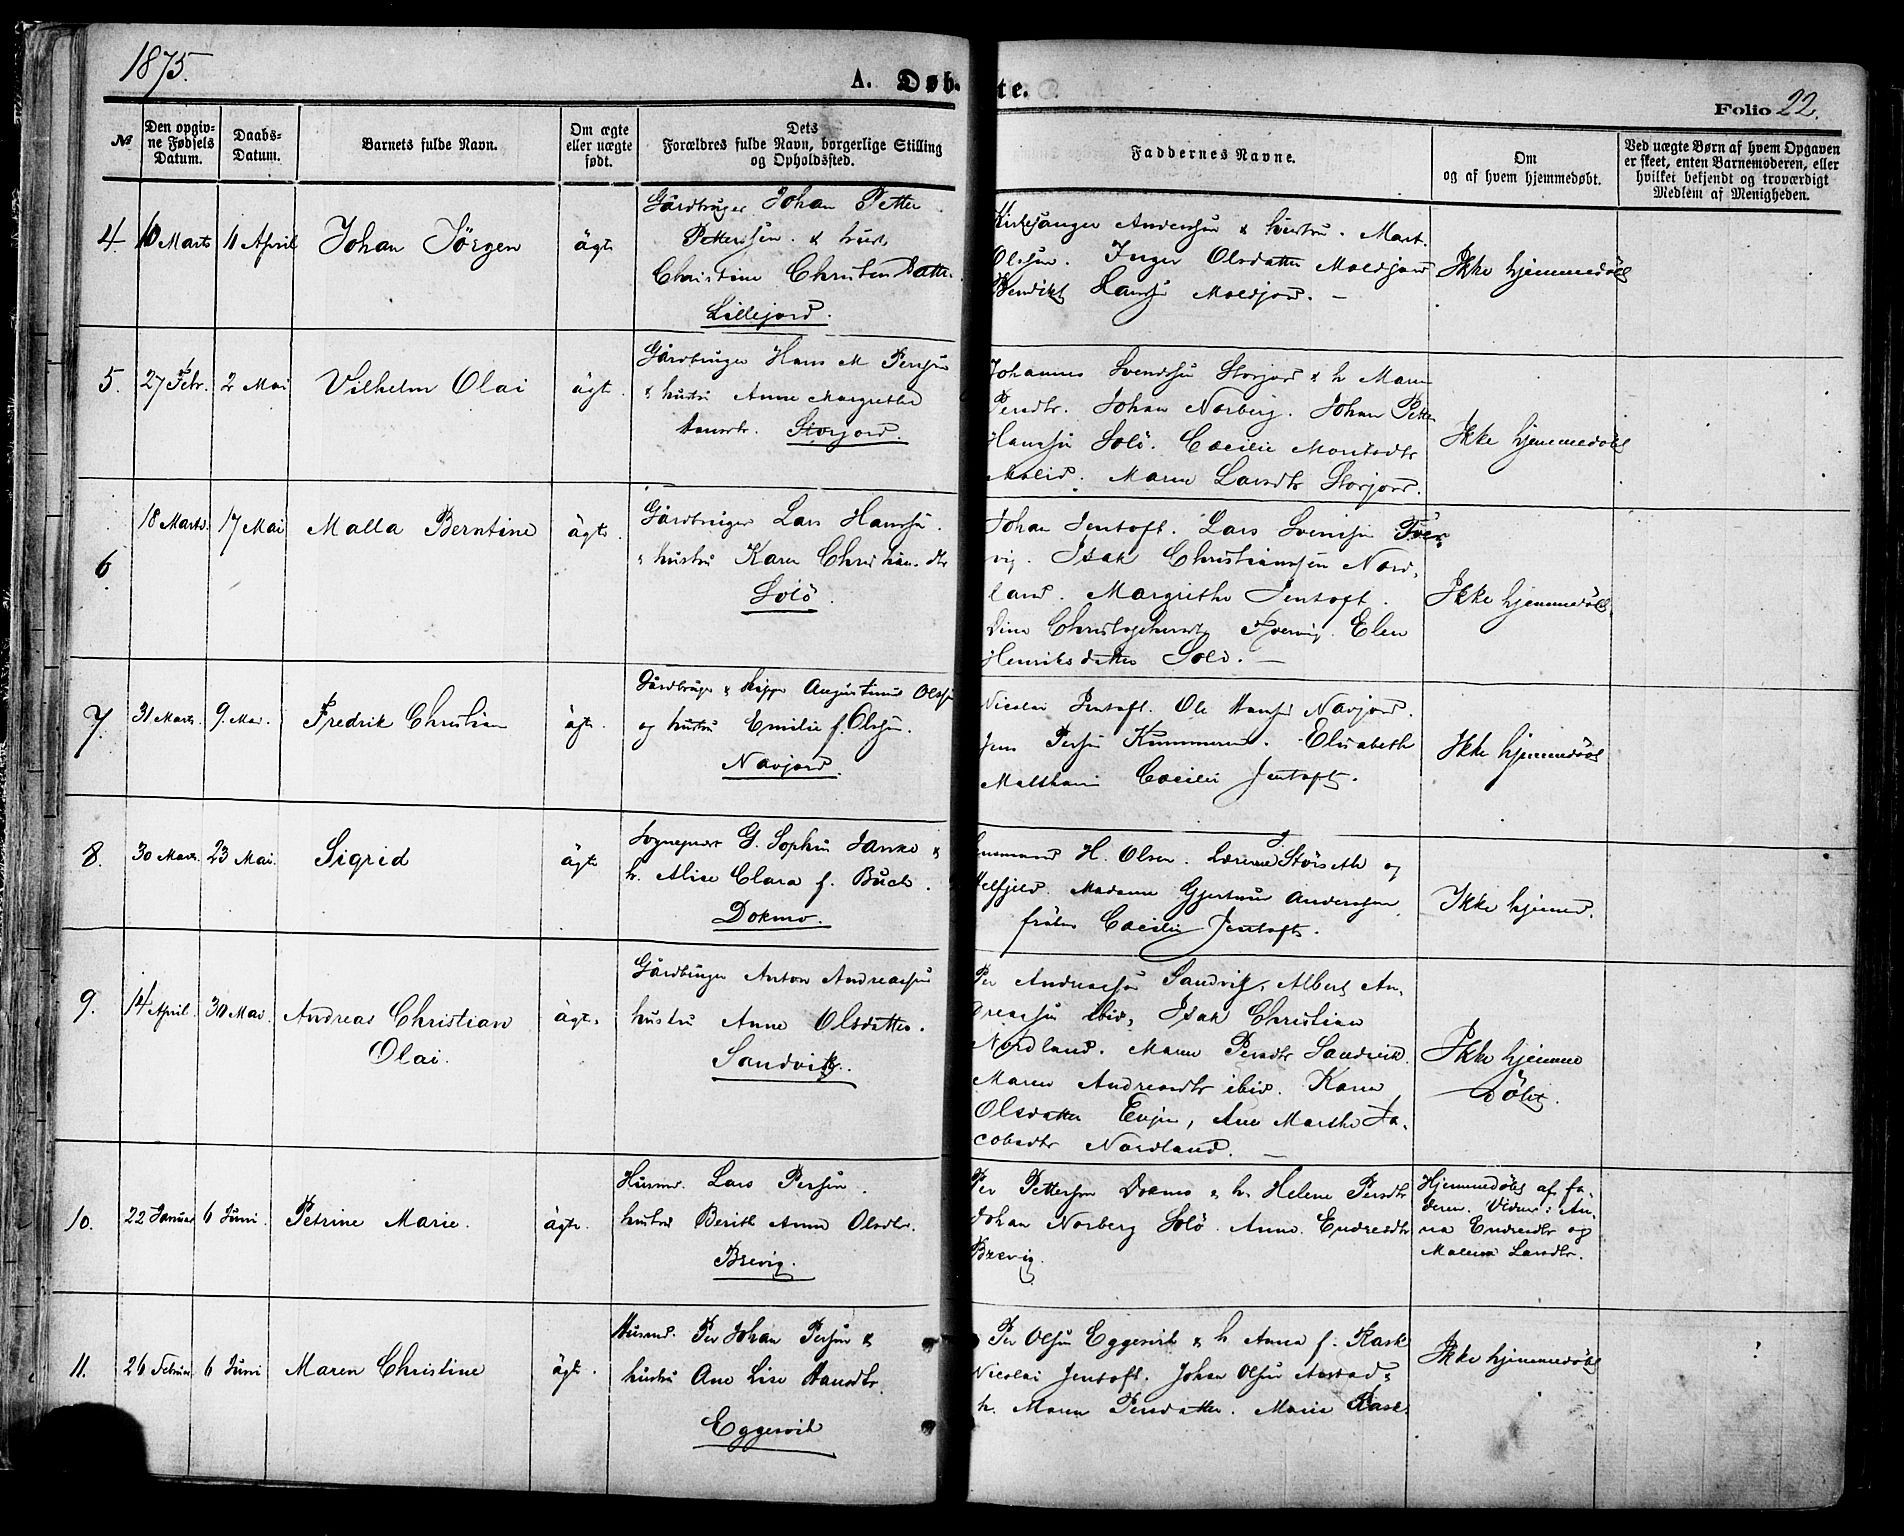 1875.
A. Døbte.
Folio 22.
№
Den opgivne Fødsels Datum.
Daabs-Datum.
Barnets fulde Navn.
Om ægte eller uægte født.
Dets Forældres fulde Navn, borgerlige Stilling og Opholdssted.
Faddernes Navne.
Om og af hvem hjemmedøbt.
Ved uægte Børn af hvem Opgaven er skeet, enten Barnemoderen, eller hvilket bekjendt og troværdigt Medlem af Menigheden.
4 10 Marts 11 April Johan Jörgen ägte
Gårdbruger Johan Petter
Petterssen. & hust.
Christine Christendatte.
Lillejord.
Kirkesanger Anderssen & hustru. Mart.
Olssen. Inger Olsdatter Moldjord
Bendikt Hanssen Moldjord. —
Ikke hjemmedöbt
5. 27 Febr. 2 Mai Vilhelm Olai ägt.
Gårdbruger Hans M Perssen
& hustru Anne Margrethe
Hansdtr. Storjord.
Johannes Svendssen Storjord & h. Maren
Persdtr. Johan Norberg. Johan Petter
Hanssen Solö. Cæcilie Monsdtr
Maren Larsdtr Storjord.
Ikke hjemmedöbt
6 18 Marts. 17 Mai Malla Berntine ägte
Gårdbruger Lars Hanssen.
& hustru Karen Christian. dtr
Solö.
Johan Jentoft. Lars Svenssen Tver-
vig. Isak Christianssen Nord-
land. Margrethe Jentoft.
Dina Tvervig. Elen
Henriksdatter Solö. —
Ikke hjemmedöbt
7. 31 Marts. 9. Mai. Fredrik Christian ägt.
Gårdbruger & Skipper Augustinus Olssen
og hustru Emilie f. Olssen.
Navjord.
Nicolai Jentoft. Ole Hanssen Navjord.
Jens Perssen Elisabeth
Cæcilie Jentoft.
Ikke hjemmedöbt
8. 30 Marts. 23 Mai. Sigrid ägte
Sognepræst G. Sophus &
h. Alise Clara f. Buch.
Dokmo.
H. Olsen. Lærerne J. Störseth og
Madame Gjertrud Anderssen
fröken Cæcilie Jentoft.
Ikke hjemmed.
9. 14 April. 30 Mai. Andreas Christian
Olai. ägte.
Gårdbruger Anton Andreassen
hustru Anne Olsdatter.
Sandvik.
Per Andreassen Sandvik, Albert An-
dreassen ibid, Isak Christian
Nordland. Maren Persdtr Sandvik.
Maren Andreasdtr ibid. Karen
Olsdatter Evjen, Ane Marthe Ja-
cobsdtr Nordland. —
Ikke hjemme
döbt.
10. 22 Januar 6 Juni. Petrine Marie. ägte.
Husmd. Lars Perssen.
hustru Berith Anna Olsdtr.
Brevig.
Per Petterssen & h. Helene Persdtr
Johan Norberg Solö. Anne Endresdtr
Brevig.
Hjemmedöbt af fa-
deren. Vidner: An-
na Endresdtr og
Malena Larsdtr.
11. 26 Februar 6 Juni Maren Christine ägt.
Husmd. Per Johan Perssen &
hustru Ane Lise Hansdtr.
Eggesvik
Per Olssen Eggesvik & h Anna f. Rask
Nicolai Jentoft. Johan Olssen
h. Maren Persdatter. Marie Rask.
Ikke hjemmedöbt